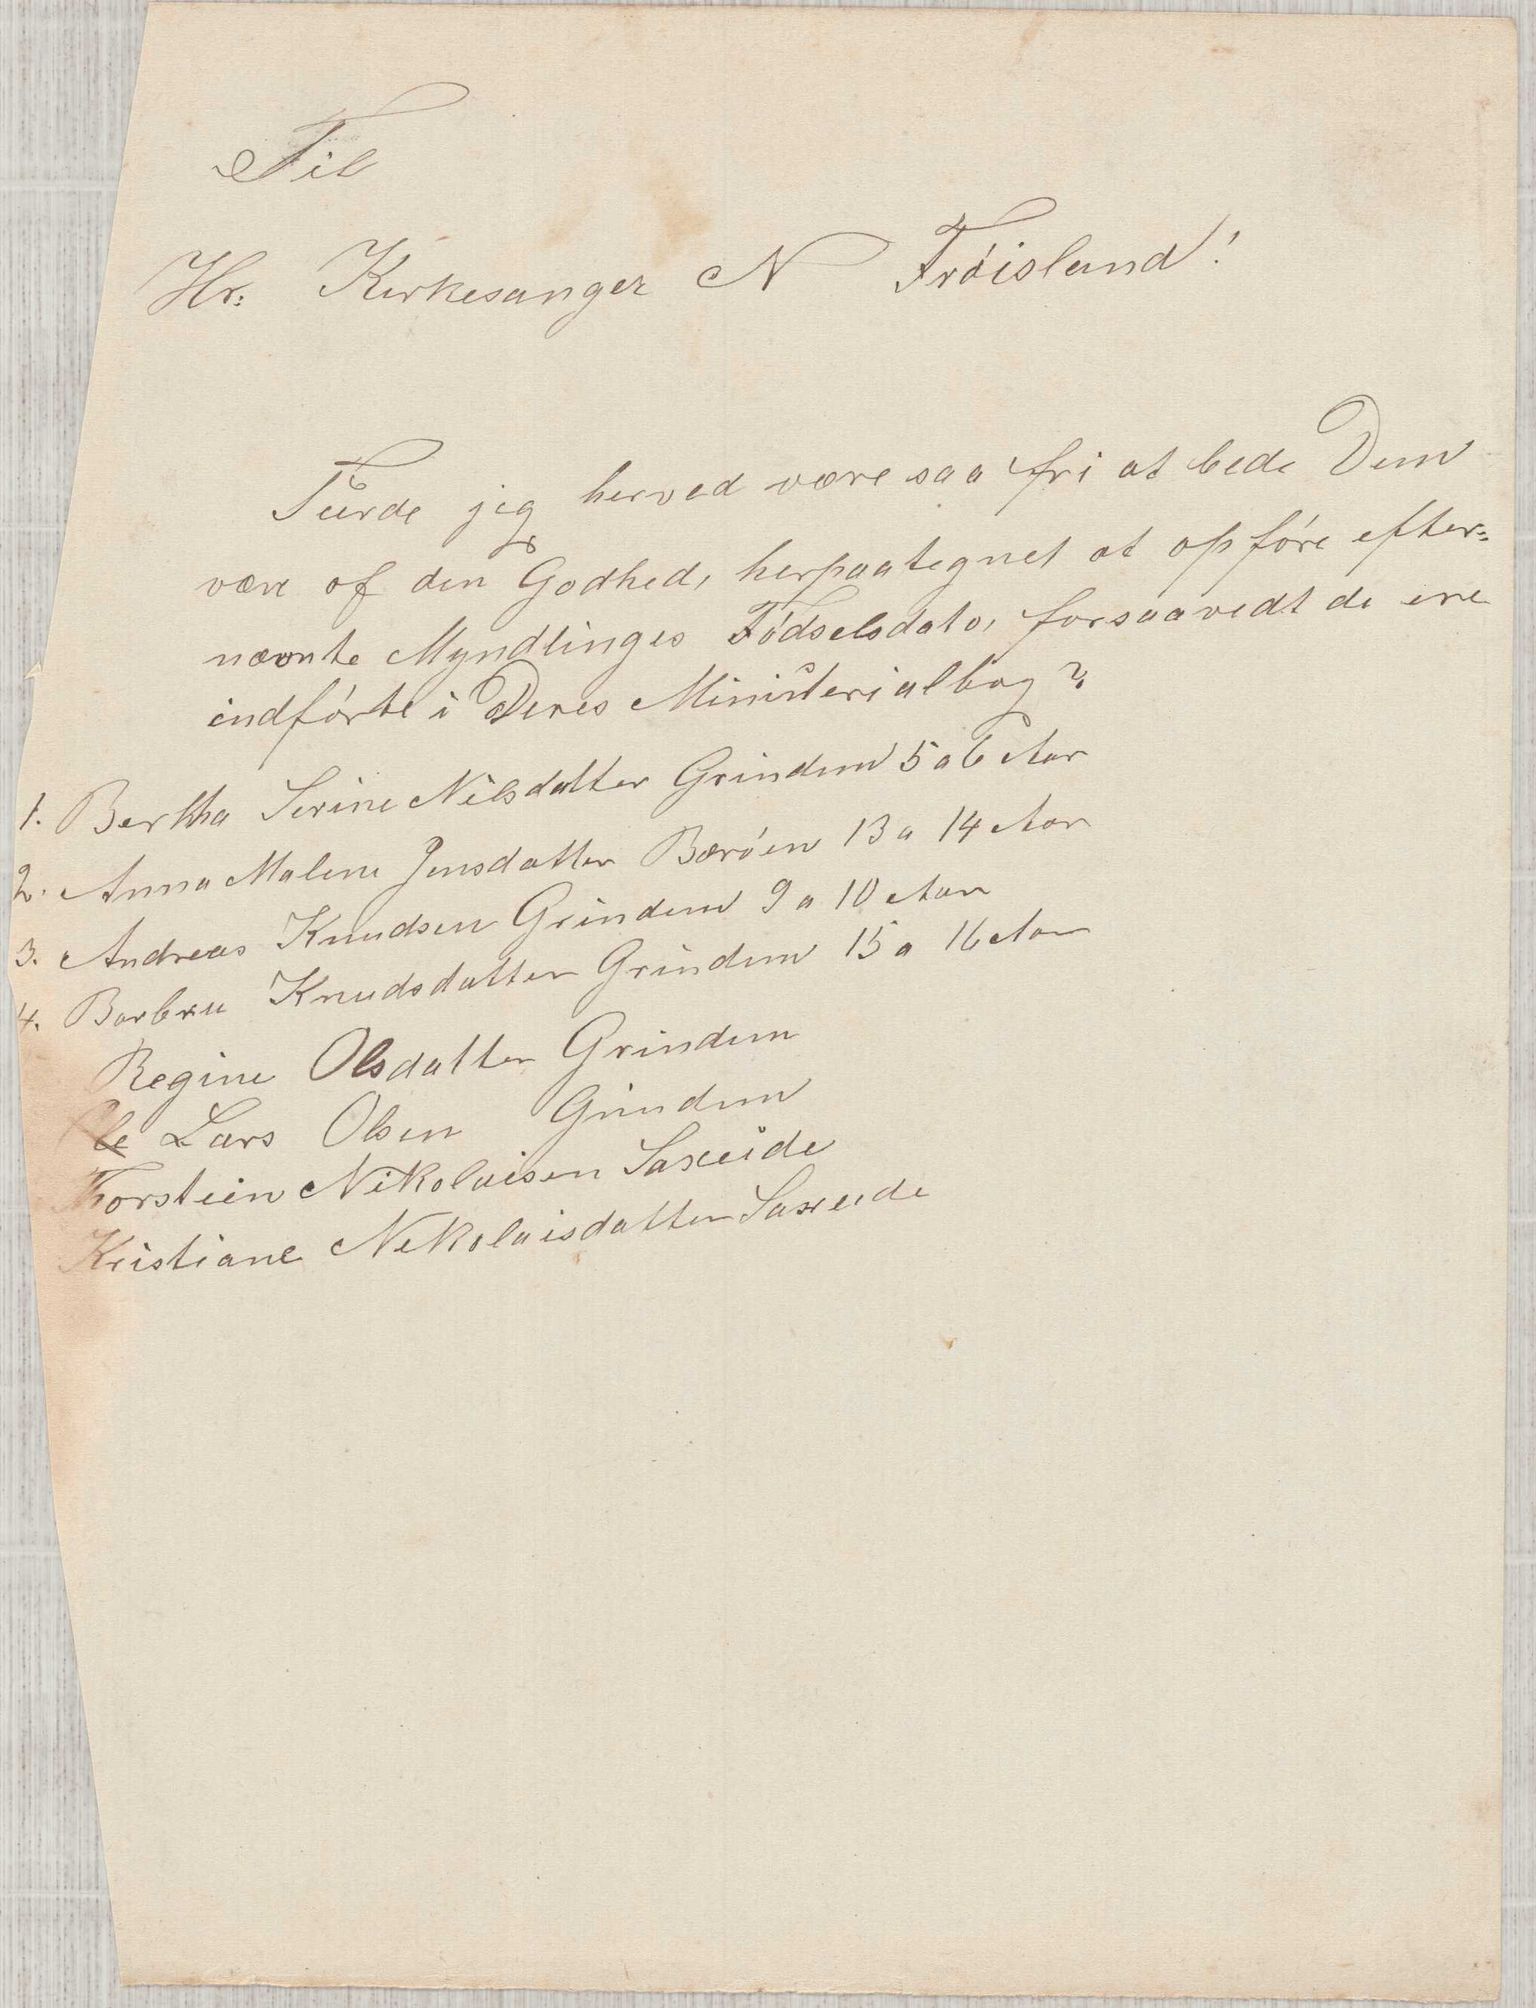 Til
Hr. Kirkesanger N Frøisland!
Turde jeg herved være saa fri at bede Dem
være af den Godhed, herpaategnet at opføre efter=
nævnte Myndlinges Fødselsdato, forsaavidt de ere
indførte i Deres Ministerialbog?
1. Bertha Serine Nilsdatter Grindem 5 a 6 Aar
2. Anna Malene Jensdatter Bærøen 13 a 14 Aar
3. Andreas Knudsen Grindem 9 a 10 Aar
4. Barbru Knudsdatter Grindem 15 a 16 Aar
Regine Olsdatter Grindem
Lars Olsen Grindem
Thorstein Nikolaisen Saxeide
Kristiane Nikolaisdatter Saxeide